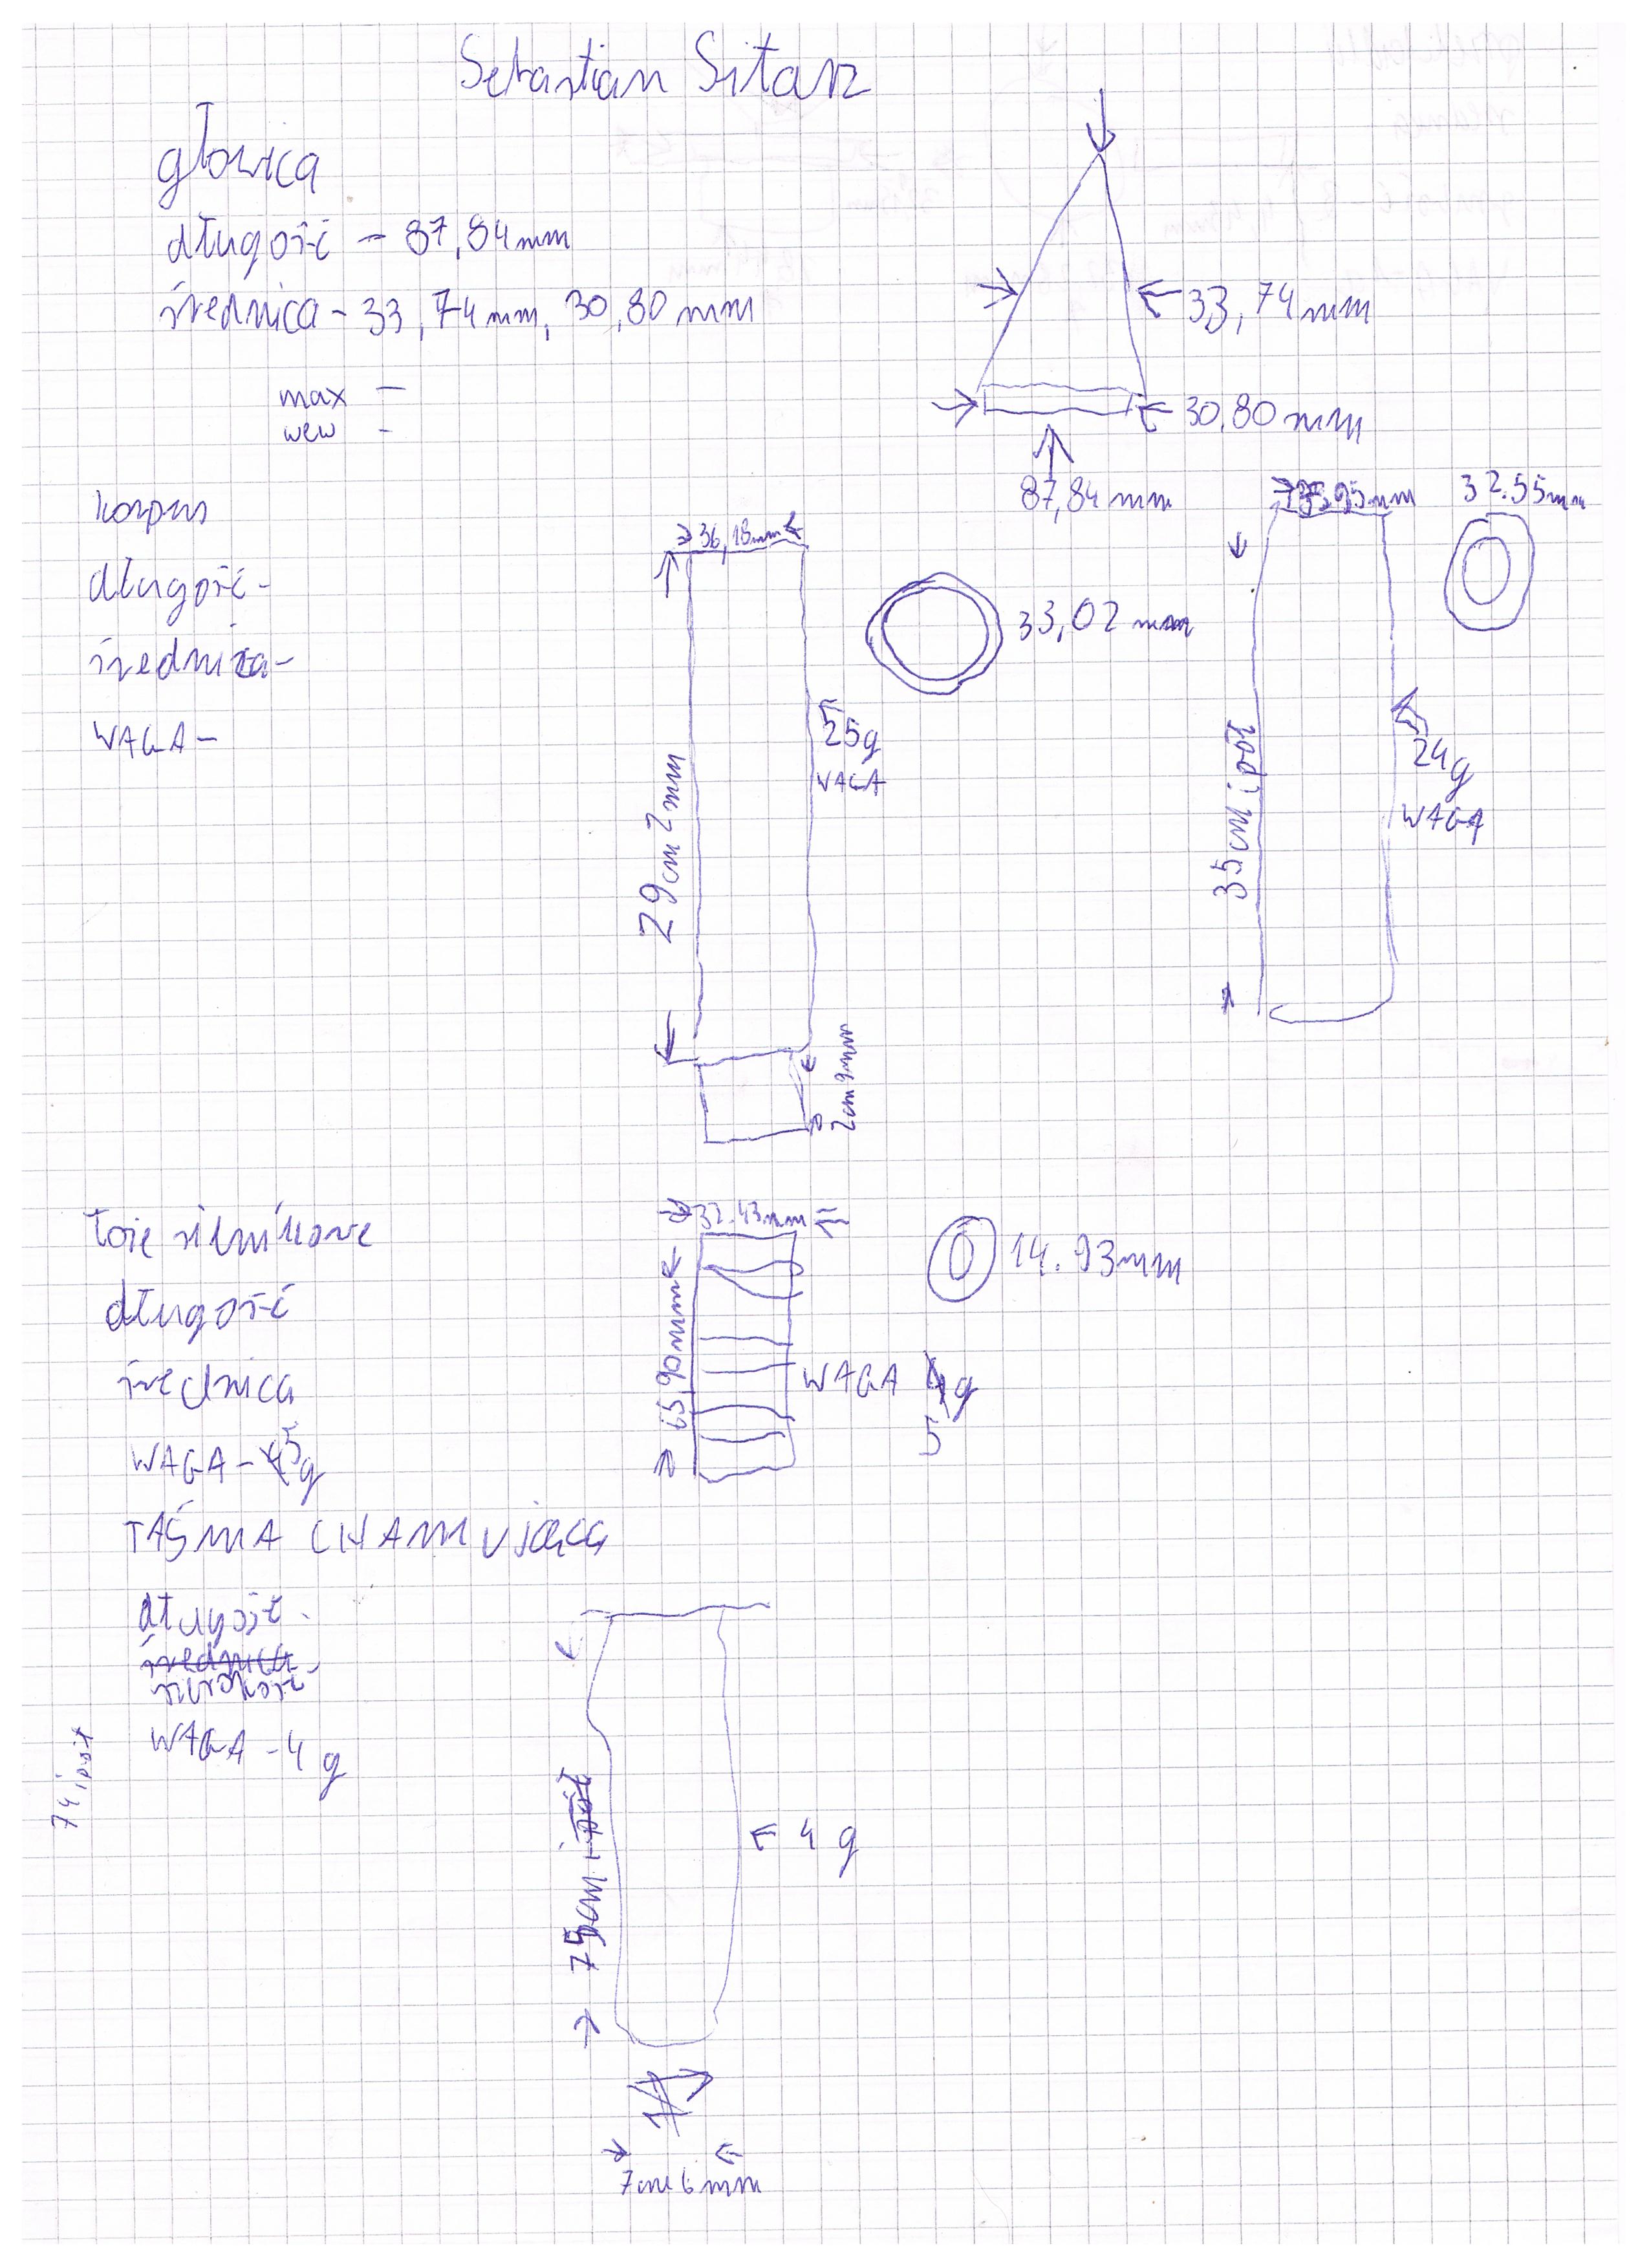 Sebastian Sitarz
głowica
długość - 87,84mm
średnica - 33,74mm, 30,80 mm
max -
wew -
33,74mm
30,80 mm
87,84 mm
korpus
długość-
średnica-
WAGA-
36,18mm
33,02 mm
25g
WAGA
29cm 2mm
2cm 9mm
32.55mm
35cm i pół
24g
WAGA
łoże silnikowe
długość
średnica
WAGA-5g
32.43mm
14.93mm
65,90mm
WAGA g
5
TAŚMA CHAMUJĄCA
długość -
średnica -
szerokość
WAGA -4 g
74 i pół
75cm i pół
4 g
7cm 6mm